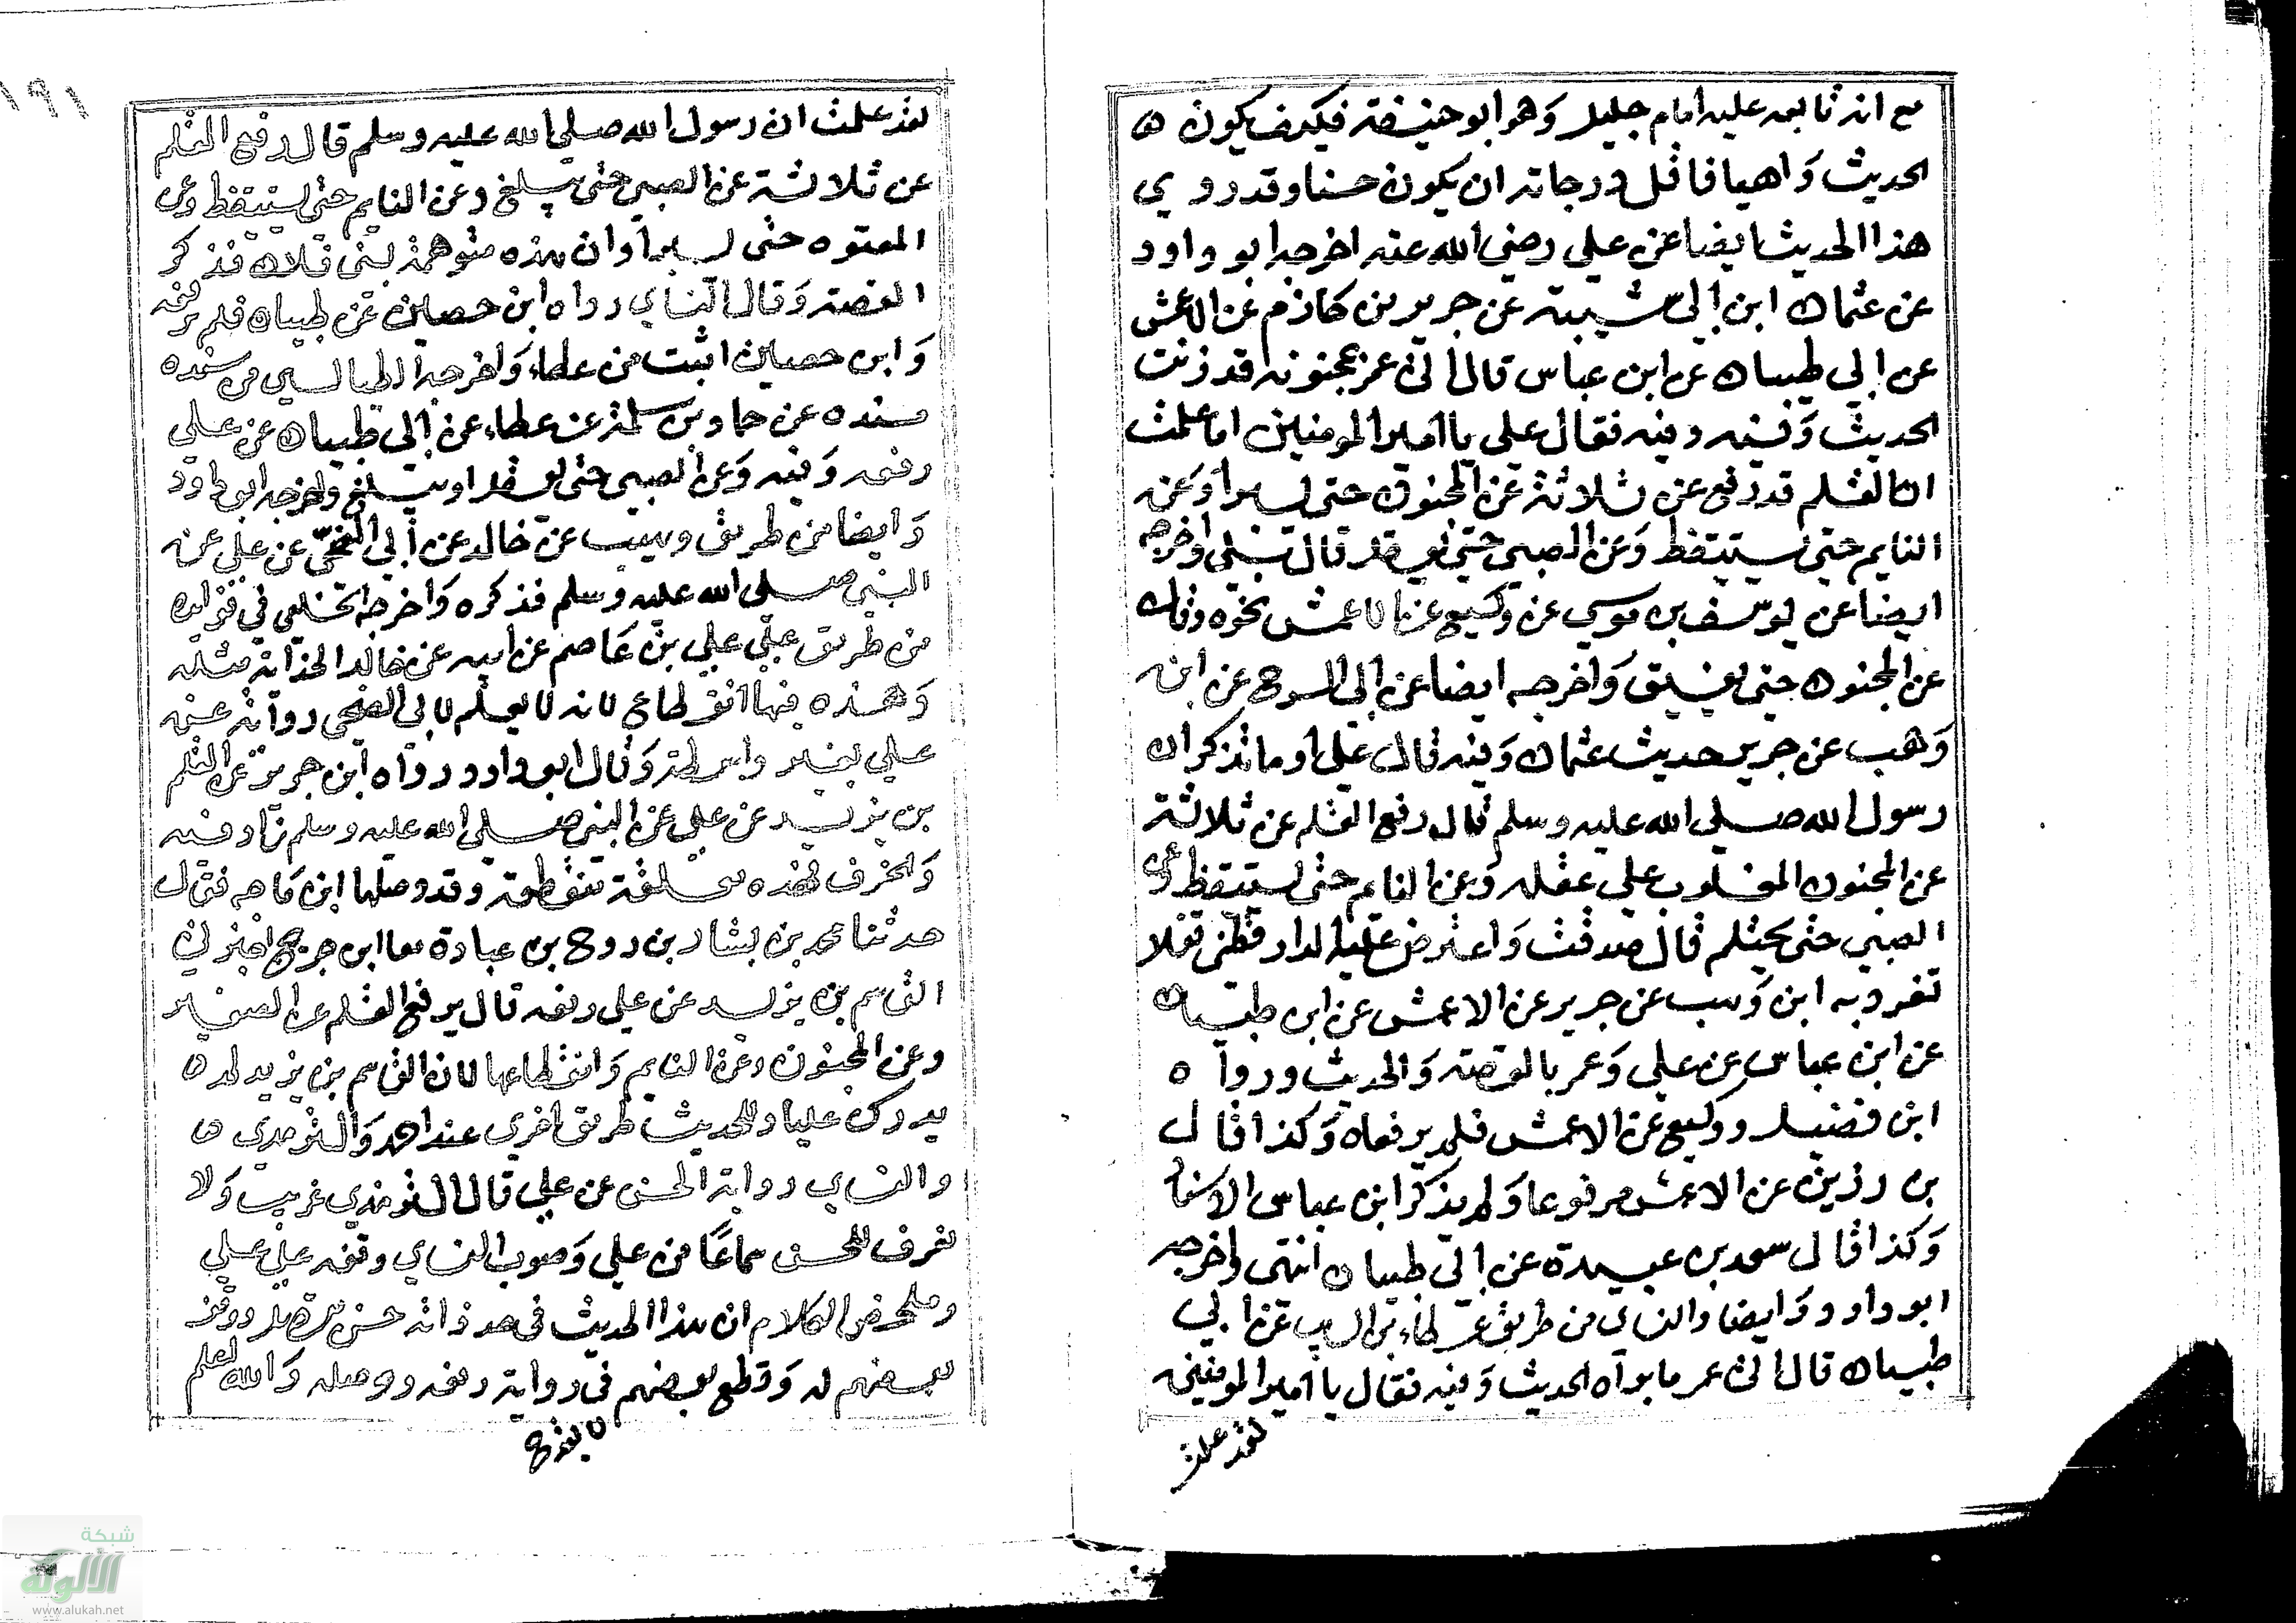 مع انه تابعه عليه امام جليل وهو ابو حنيفة فكيف يكون
الحديث واهيا فاقل درجاته ان يكون حسنا وقد روي
هذا الحديث ايضا عن علي رضي الله عنه اخرجه ابو داود
عن عثمان ابن ابي شيبة عن جرير بن حازم عن الاعمش
عن ابي ظبيان عن ابن عباس قال اتى عمر بمجنونه قد زنت
الحديث وفيه فقال علي يا امير المومنين اما علمت
ان القلم قد رفع عن ثلاثة عن المجنون حتى يبرا وعن
النايم حتى يستيقظ وعن الصبي حتى يعقل قال بلى واخرجه
ايضا عن يوسف بن موسي عن وكيع عن الاعمش نحوه وقال
عن المجنون حتى يفيق واخرجه ايضا عن ابي السرح عن ابن
وهب عن جرير حديث عثمان وفيه قال علي او ما تذكر ان
رسول الله صلى الله عليه وسلم قال رفع القلم عن ثلاثة
عن المجنون المغلوب علي عقله وعن النايم حتى يستيقظ وعن
الصبي حتى يحتلم قال صدقت واعترض عليه الدارقطني
تفرد به ابن وهب عن جرير عن الاعمش عن ابن ظبيان
عن ابن عباس عن علي وعمر بالقصة والحديث ورواه
ابن فضيل ووكيع عن الاعمش فلم يرفعاه وكذا قال
بن رزين عن الاعمش مرفوعا ولم يذكر ابن عباس
وكذا قال سعد بن عبيدة عن ابي ظبيان انتهى واخرجه
ابو داود وايضا والنساي من طريق عطاء بن السايب عن ابي
ظبيان قال اتى عمر بامراه الحديث وفيه فقال يا امير المومنين
لقد علمت
١٩١
لقد علمت ان رسول الله صلى الله عليه وسلم قال رفع القلم
عن ثلاثة عن الصبي حتى يبلغ وعن النايم حتى يستيقظ وعن
المعتوه حتى يبرا وان هذه معتوهة بني فلان فذكر
القصة وقال النساي رواه ابن حصين عن ظبيان فلم يرفعه
وابن حصين اثبت من عطاء واخرجه الطيالسي من سنده
مسنده عن حماد بن سلمة عن عطاء عن ابي ظبيان عن علي
رفعه وفيه وعن الصبي حتى يعقل او يبلغ واخرجه ابو داود
وايضا من طريق وهيب عن خالد عن ابي الضحى عن علي عن
النبي صلى الله عليه وسلم فذكره واخرجه الخلعي في فوايده
من طريق علي علي بن عاصم عن ابيه عن خالد الحذا به مثله
وهذه فيها انقطاع لانه لا يعلم لابي الضحى رواية عن
علي بغير واسطة وقال ابو داود رواه ابن جريج عن القلم
بن يزيد عن علي عن النبي صلى الله عليه وسلم زاد فيه
والخرف فهذه معلقة منقطعة وقد وصلها ابن ماجه فقال
حدثنا محمد بن بشار بن روح بن عبادة ابن جريج اخبرني
القاسم بن يزيد عن علي رفعه قال يرفع القلم عن الصغير
وعن المجنون وعن النايم وانقطاعها لان القاسم بن يزيد لم
يدرك عليا وللحديث طريق اخري عند احمد والترمذي
والنساي رواية الحسن عن علي قال الترمذي غريب ولا
نعرف للحسن سماعا من علي وصوب النساي وقفه علي علي
وملخص الكلام ان هذا الحديث في حد ذاته حسن
بعضهم له وقطع بعضهم في رواية رفعه ووصله والله اعلم
شبكة
الألوكة
www.alukah.net